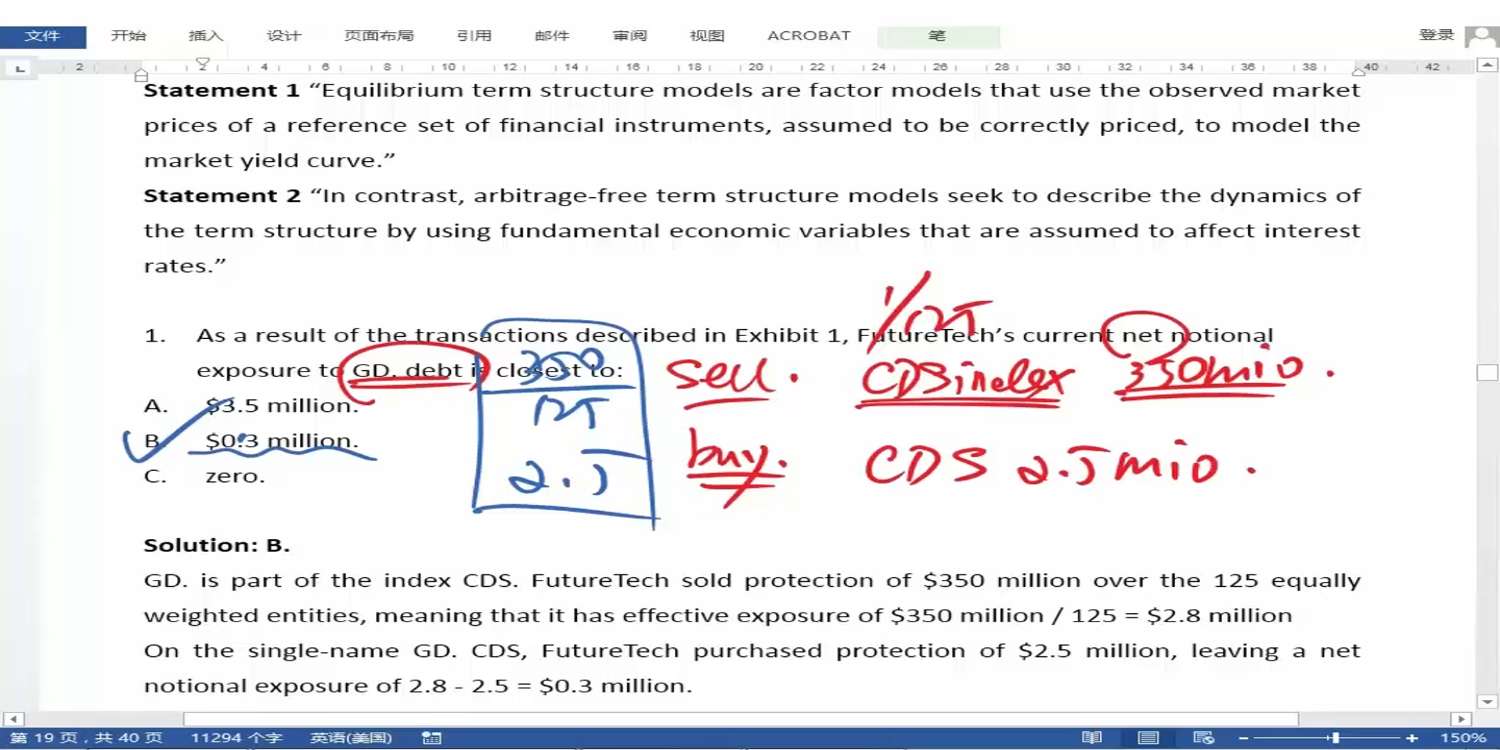 文件 开始 插入 设计 页面布局 引用 邮件 审阅 视图 ACROBAT 笔 登录
2 2 4 6 8 10 12 14 16 18 20 22 24 26 28 30 32 34 36 38 40 42
Statement 1 “Equilibrium term structure models are factor models that use the observed market
prices of a reference set of financial instruments, assumed to be correctly priced, to model the
market yield curve.”
Statement 2 “In contrast, arbitrage-free term structure models seek to describe the dynamics of
the term structure by using fundamental economic variables that are assumed to affect interest
rates.”
1/125
1. As a result of the transactions described in Exhibit 1, FutureTech’s current net notional
exposure to GD. debt is closest to:
350
sell. CDSindex 350mio.
A. $3.5 million.
125
B. $0.3 million.
buy. CDS 2.5mio.
C. zero.
2.5
Solution: B.
GD. is part of the index CDS. FutureTech sold protection of $350 million over the 125 equally
weighted entities, meaning that it has effective exposure of $350 million / 125 = $2.8 million
On the single-name GD. CDS, FutureTech purchased protection of $2.5 million, leaving a net
notional exposure of 2.8 - 2.5 = $0.3 million.
第 19 页，共 40 页 11294 个字 英语(美国) 150%